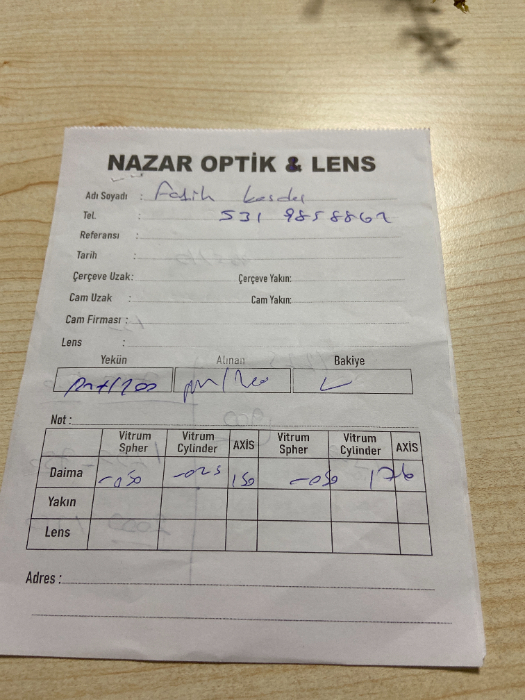 NAZAR OPTİK & LENS
Adı Soyadı : Fatih
Tel. : 531 9858862
Referansı :
Tarih :
Çerçeve Uzak: Çerçeve Yakın:
Cam Uzak : Cam Yakın:
Cam Firması :
Lens :
Yekün Alınan Bakiye
Not :
Vitrum Spher Vitrum Cylinder AXİS Vitrum Spher Vitrum Cylinder AXİS
Daima -050 -025 150 -050 176
Yakın
Lens
Adres :